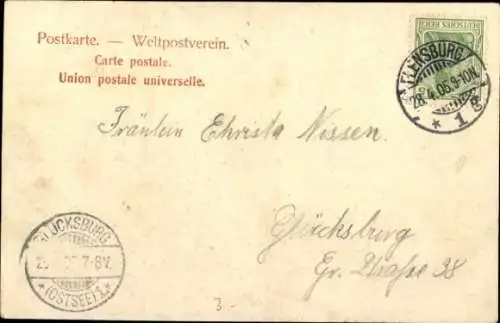 Postkarte. — Weltpostverein.
Carte postale.
Union postale universelle.
DEUTSCHES REICH
FLENSBURG
28.4.05.9-10N.
* 1g
Fräulein Christa Nissen.
Glücksburg
Gr. Straße 38
GLÜCKSBURG
7-8V.
*(OSTSEE)*
3-